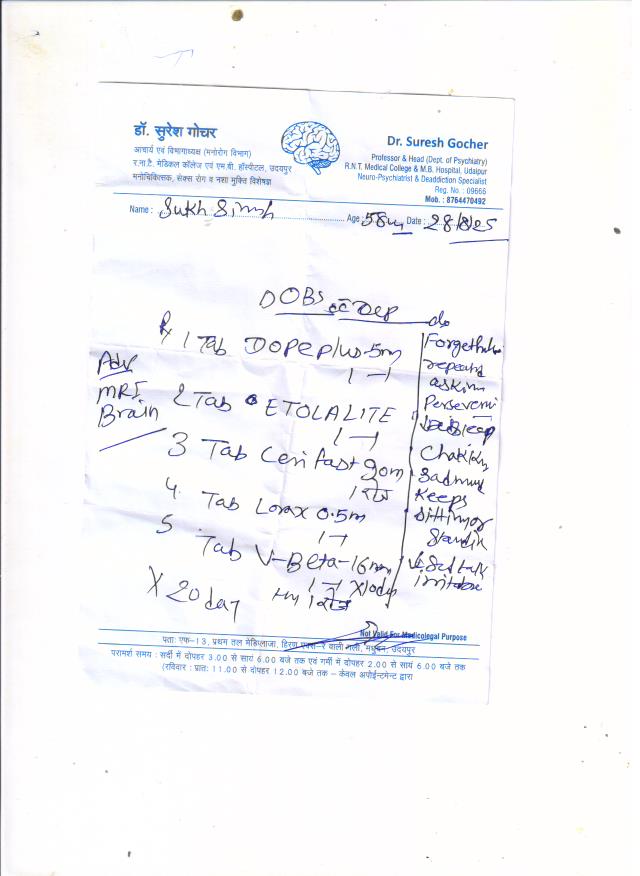 डॉ. सुरेश गोचर
आचार्य एवं विभागाध्यक्ष (मनोरोग विभाग)
र.ना.टै. मेडिकल कॉलेज एवं एम.बी. हॉस्पीटल, उदयपुर
मनोचिकित्सक, सेक्स रोग व नशा मुक्ति विशेषज्ञ
Dr. Suresh Gocher
Professor & Head (Dept. of Psychiatry)
R.N.T. Medical College & M.B. Hospital, Udaipur
Neuro-Psychiatrist & Deaddiction Specialist
Reg. No. : 09666
Mob. : 8764470492
Name : Sukh Singh Age : 58 Date : 28/8/25
DOBS Dep
Rx 1 Tab DOPEPlus-5m
1 —1
Adv
MRI
Brain
2 Tab ETOLALITE
1 —1
3 Tab Cerifast gom
4. Tab Lorax 0.5m
1 —1
5 Tab V-Beta-16mm
1 —1 X10dy
X 20 day
c/o
repeated
asking
Sleep
Sad mud
Keeps
Sitting or
Self talk
irritable
Not Valid For Medicolegal Purpose
पता: एफ-13, प्रथम तल मेडिप्लाजा, हिरण एक्स-रे वाली गली, मधुबन, उदयपुर
परामर्श समय : सर्दी में दोपहर 3.00 से सायं 6.00 बजे तक एवं गर्मी में दोपहर 2.00 से सायं 6.00 बजे तक
(रविवार : प्रात: 11.00 से दोपहर 12.00 बजे तक – केवल अपोईन्टमेन्ट द्वारा